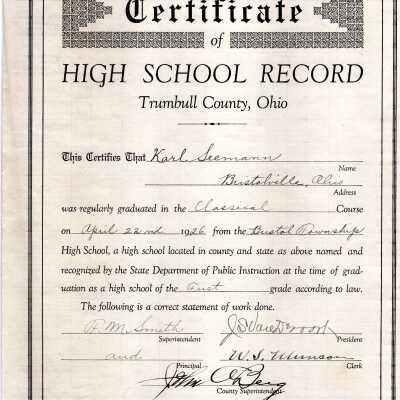 Certificate
of
HIGH SCHOOL RECORD
Trumbull County, Ohio
This Certifies That Karl Seemann
Name
Bristolville, Ohio
Address
was regularly graduated in the Classical Course
on April 22nd 1926 from the Bristol Township
High School, a high school located in county and state as above named and
recognized by the State Department of Public Instruction at the time of grad-
uation as a high school of the first grade according to law.
The following is a correct statement of work done.
P. M. Smith
Superintendent President
and W. S. Munson
Principal Clerk
County Superintendent